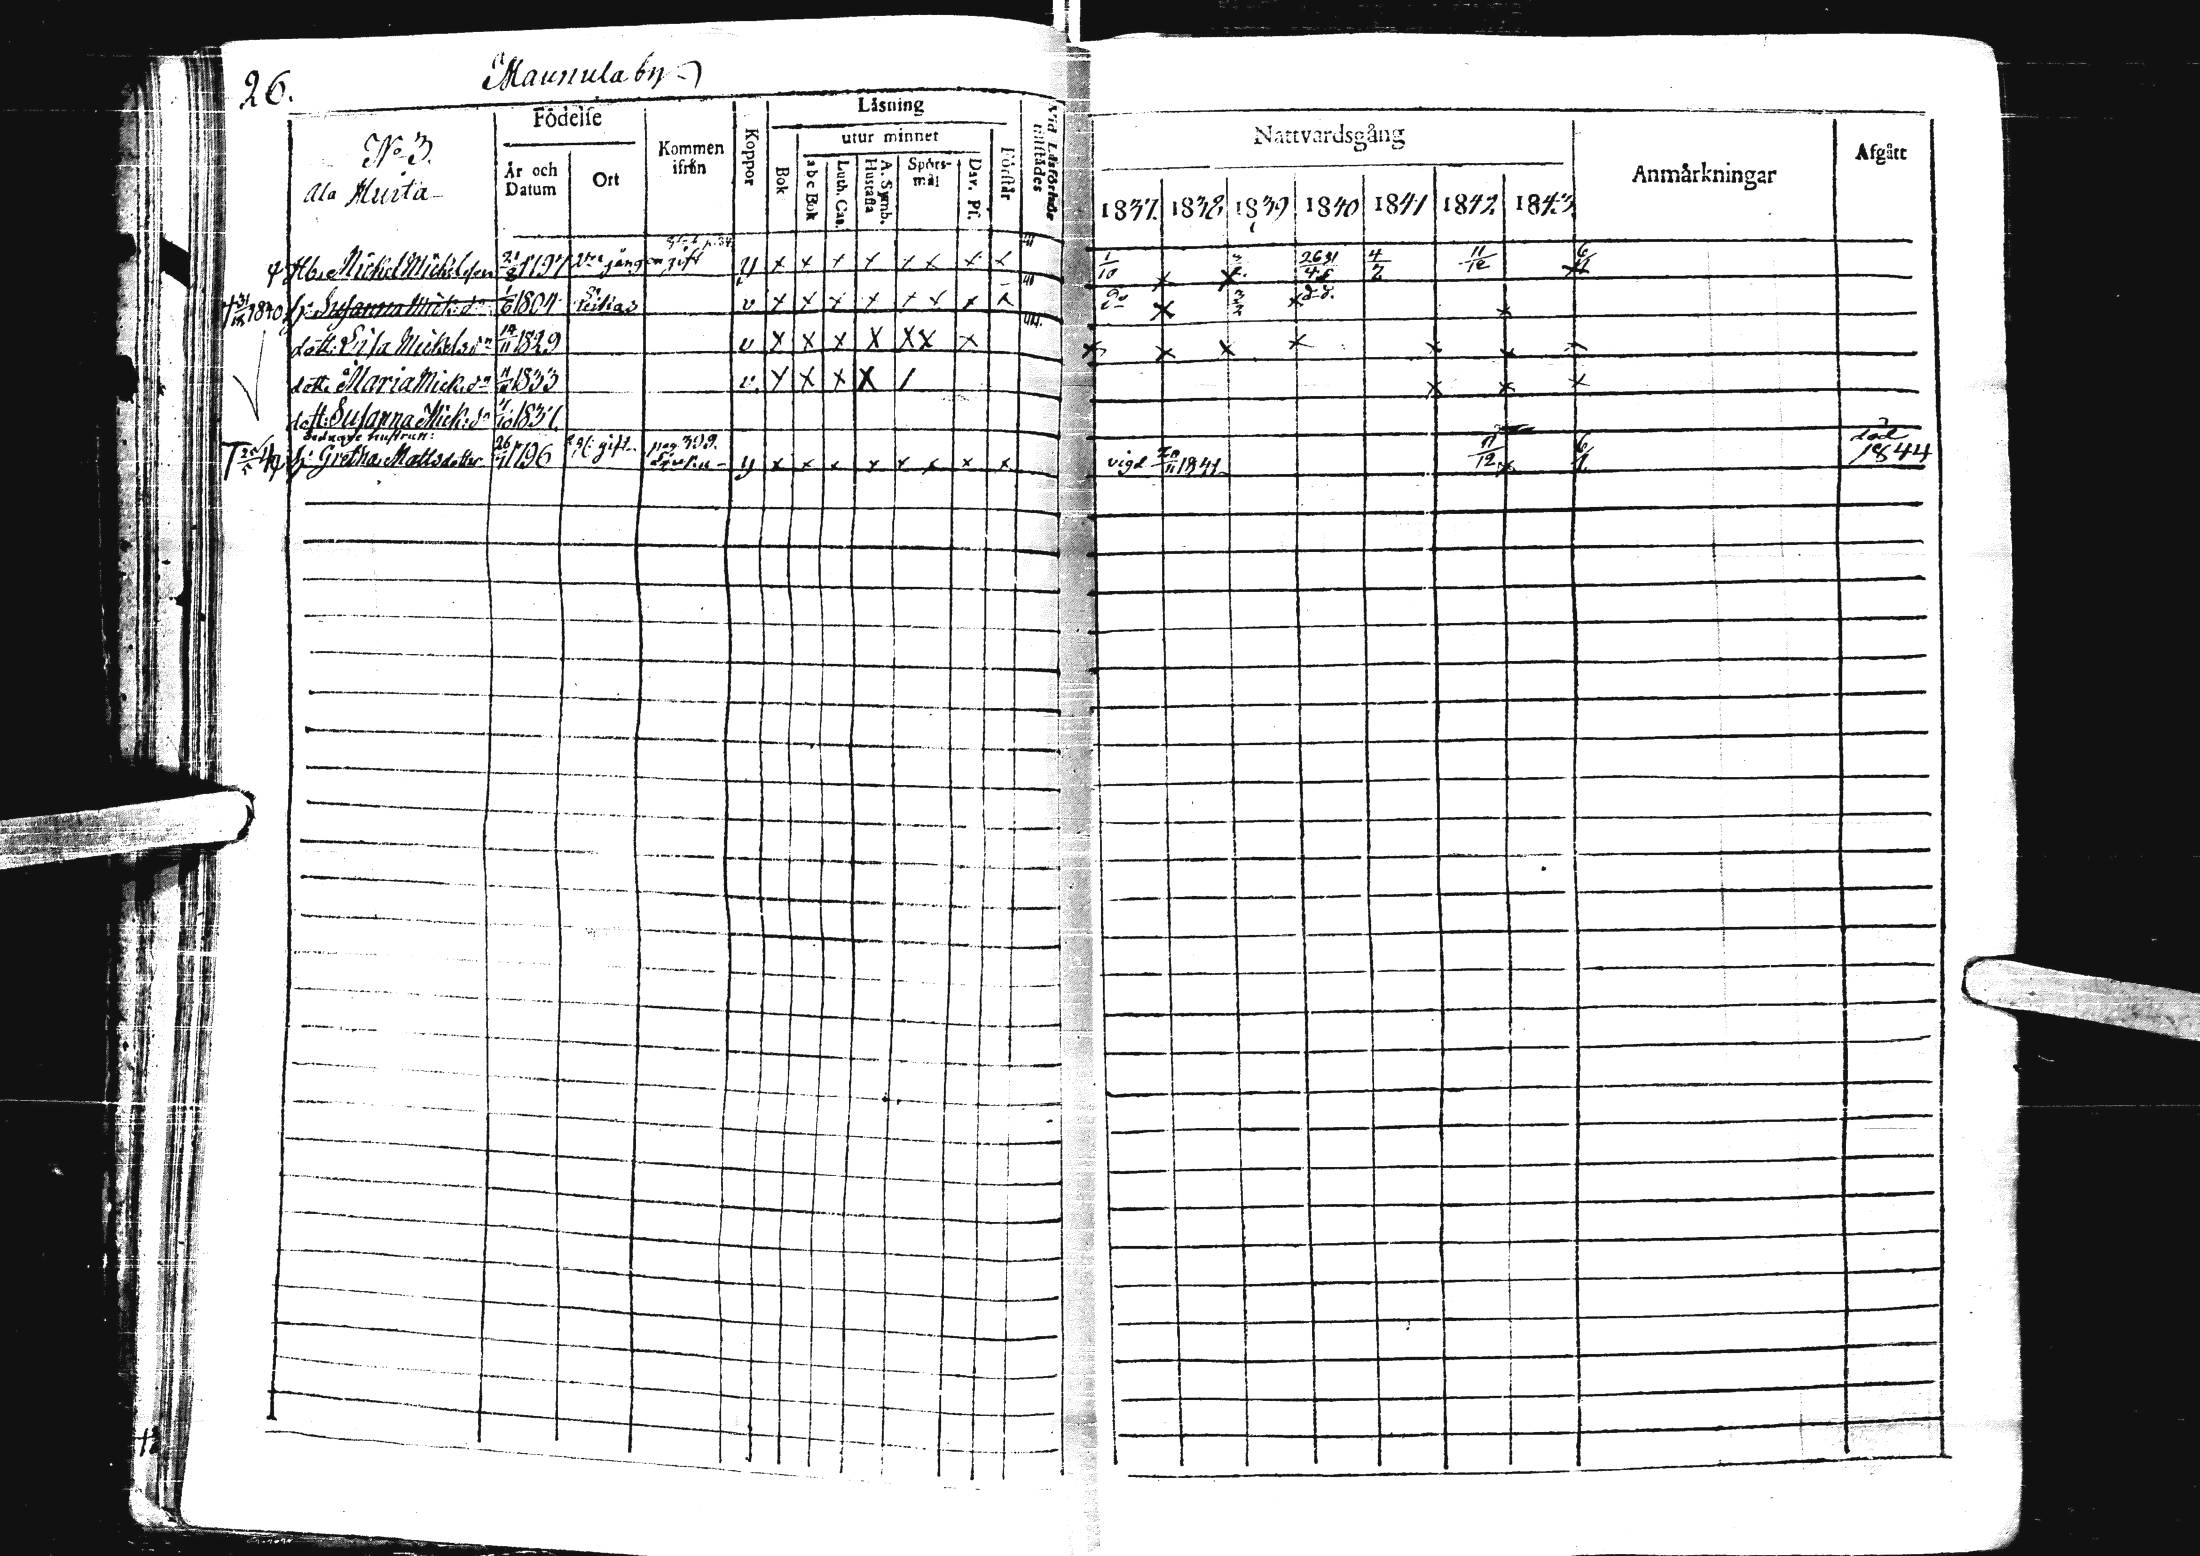 26.
Maunula by
No 3.
Ala Hurta
Födelse
År och Datum
Ort
Kommen ifrån
Koppor
Läsning
utur minnet
Bok
a b c Bok
Luth. Cat.
A. Symb. Hustafla
Spörsmål
Dav. Ps.
Förstår
Vid Läsförhör tillstädes
Nattvardsgång
1837. 1838. 1839 1840 1841 1842. 1843.
Anmärkningar
Afgått
Hb. Michel Michelsson 21/8 1797 2dra gången gift y x x x x x x x x 1/10 x x 26 31 4/2 11/12 6/4
1840 h: Susanna Mick: dr 1804 v x x x x x x x x do x x d. d. x
dott: Lisa Mickelsdr 14/11 1829 v x x x x x x x x x x x x x x
dott. Maria Mick: dr 1833 v. x x x x / x x x
dott: Susanna Mick: dr 1837.
h: Gretha Mattsdotter 26/11 1796 gift pag. 399. y x x x x x x x x vigd 1841 11/12 x 6/4 död 1844